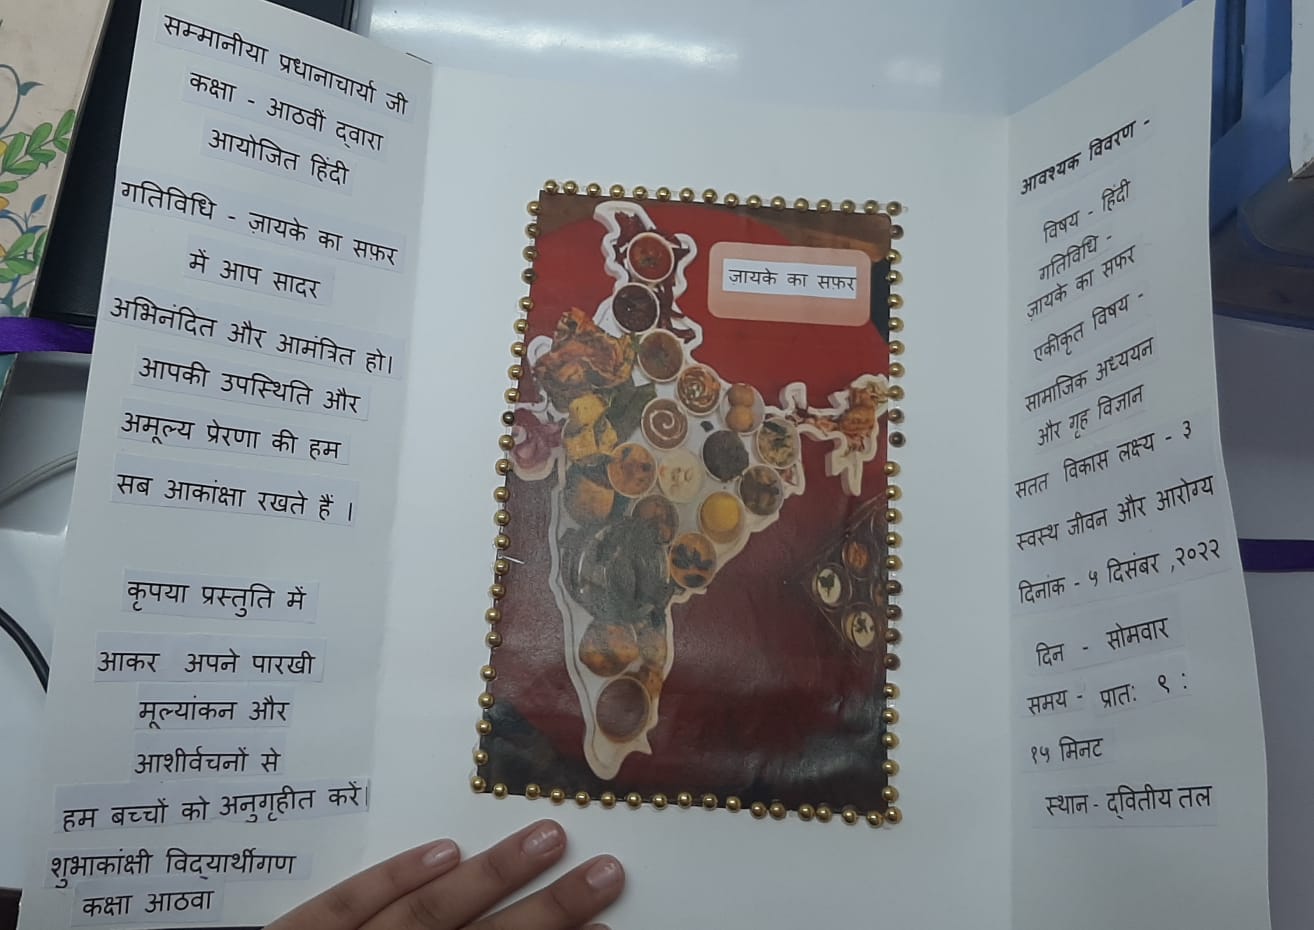 सम्मानीया प्रधानाचार्या जी
कक्षा - आठवीं द्वारा
आयोजित हिंदी
गतिविधि - ज़ायके का सफ़र
में आप सादर
अभिनंदित और आमंत्रित हो।
आपकी उपस्थिति और
अमूल्य प्रेरणा की हम
सब आकांक्षा रखते हैं ।
कृपया प्रस्तुति में
आकर अपने पारखी
मूल्यांकन और
आशीर्वचनों से
हम बच्चों को अनुगृहीत करें।
शुभाकांक्षी विद्यार्थीगण
कक्षा आठवा
ज़ायके का सफ़र
आवश्यक विवरण -
विषय - हिंदी
गतिविधि -
ज़ायके का सफ़र
एकीकृत विषय -
सामाजिक अध्ययन
और गृह विज्ञान
सतत विकास लक्ष्य - ३
स्वस्थ जीवन और आरोग्य
दिनांक - ५ दिसंबर ,२०२२
दिन - सोमवार
समय - प्रात: ९ :
१५ मिनट
स्थान - द्वितीय तल